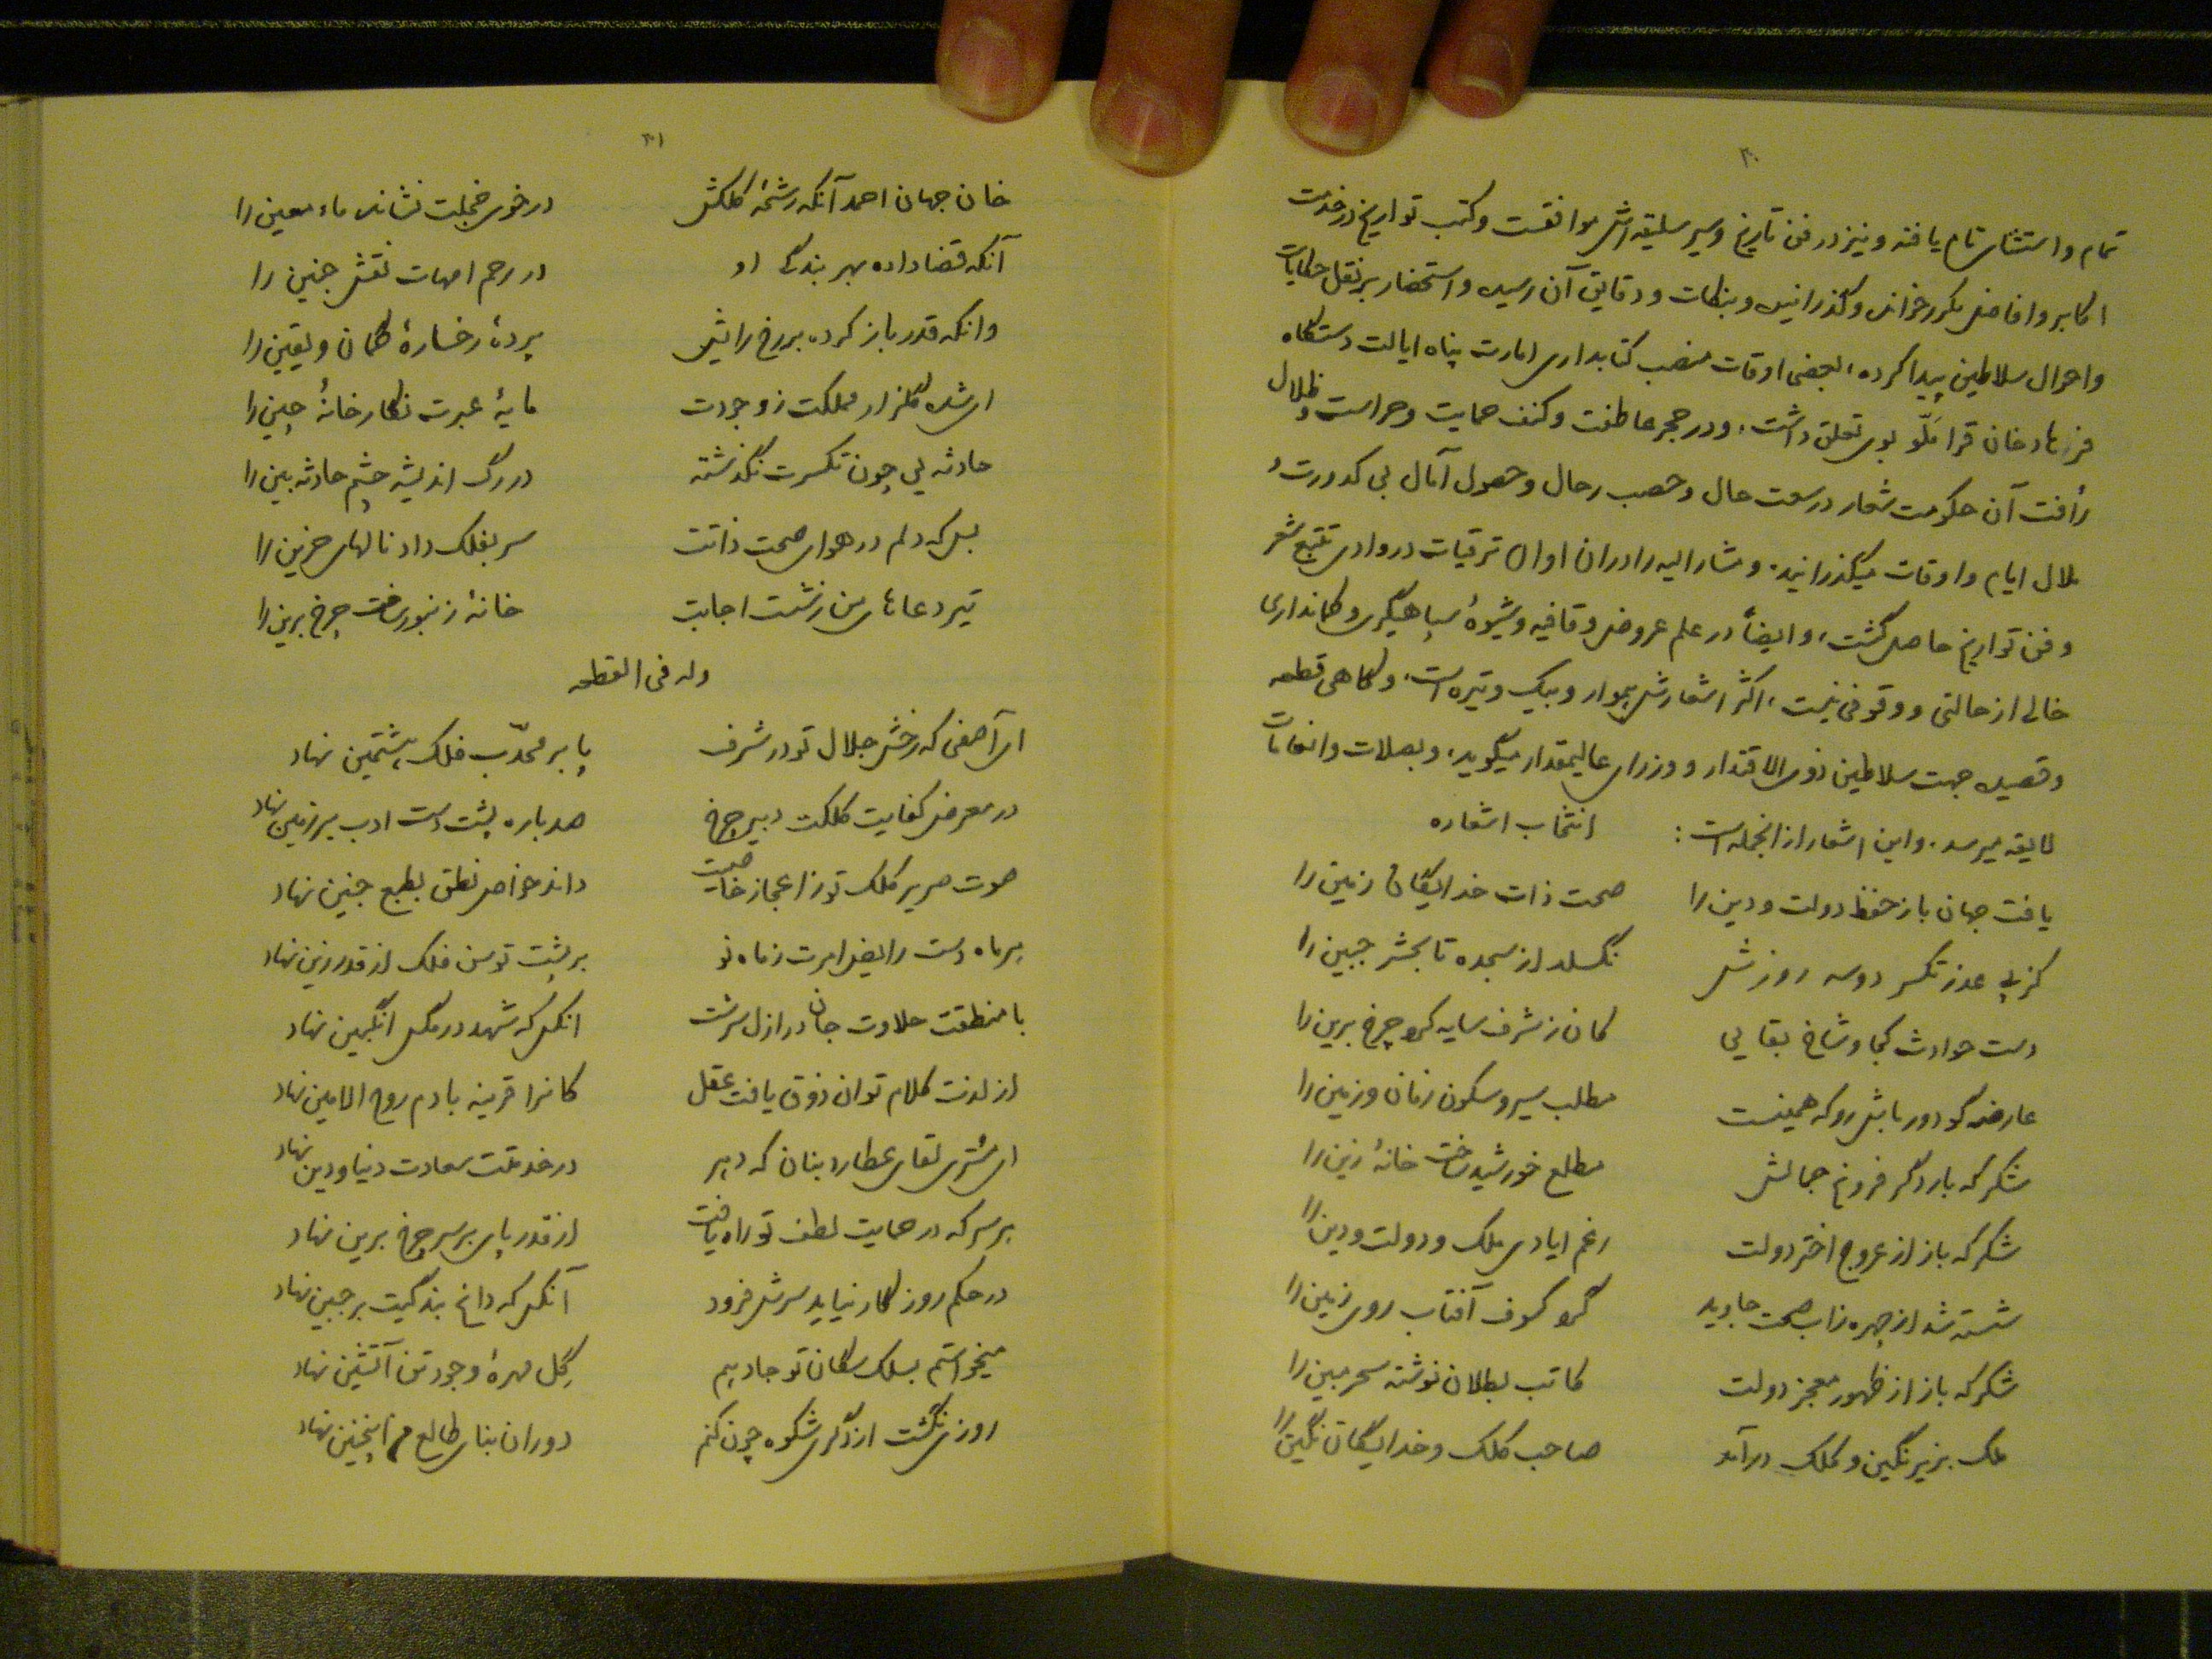 ۳۰
تمام و استثنای تام یافته و نیز در فن تاریخ و سیر سلیقه اش موافقست و کتب تواریخ در خدمت
اکابر و افاضل مکرر خوانده و گذرانیده و بنکات و دقایق آن رسیده و استحضار بر نقل حکایات
و احوال سلاطین پیدا کرده، بعضی اوقات منصب کتابداری امارت پناه ایالت دستگاه
فرهاد خان قرامنلّو بوی تعلق داشت، و در حجر عاطفت و کنف حمایت و حراست و ظلال
رأفت آن حکومت شعار در سعت حال و خصب رحال و حصول آمال بی کدورت و
ملال ایام و اوقات میگذرانید. و مشارالیه را در آن اوان ترقیات در وادی تتبع شعر
و فن تواریخ حاصل گشت، و ایضاً در علم عروض و قافیه و شیوهٔ سپاهیگری و کمانداری
خالی از حالتی و وقوفی نیست، اکثر اشعارش هموار و بیک وتیره است، و گاهی قطعه
و قصیده جهت سلاطین ذوی الاقتدار و وزرای عالیمقدار میگوید، و بصلات و انعامات
لایقه میرسد. و این اشعار از انجمله است: انتخاب اشعاره
یافت جهان باز حفظ دولت و دین را صحت ذات خدایگان زمین را
کز پی عذر تکسر دو سه روزش نگسلد از سجده تا بحشر جبین را
دست حوادث کجا و شاخ بقایی کان ز شرف سایه کرد چرخ برین را
عارضه گو دور باش رو که همینست مطلب سیر و سکون زمان و زمین را
شکر که بار دگر فروغ جمالش مطلع خورشید ساخت خانهٔ زین را
شکر که باز از عروج اختر دولت رغم ایادی ملک و دولت و دین را
شسته شد از چهره ز آب صحت جاوید گرد کسوف آفتاب روی زمین را
شکر که باز از ظهور معجز دولت کاتب بطلان نوشته سحر مبین را
ملک بزیر نگین و کلک درآمد صاحب کلک و خدایگان نگین را
۳۱
خان جهان احمد آنکه رشحهٔ کلکش در خوی خجلت نشانده ماء معین را
آنکه قضا داده بهر بندگی او در رحم امهات نقش جنین را
وانکه قدر باز کرده بر رخ رایش پردهٔ رخسارهٔ گمان و یقین را
ای شده گلزار مملکت ز وجودت مایهٔ عبرت نگارخانهٔ چین را
حادثه یی چون تکسرت نگذشته در رگ اندیشه چشم حادثه بین را
بس که دلم در هوای صحت ذاتت سر بفلک داد نالهای حزین را
تیر دعاهای من ز شست اجابت خانهٔ زنبور ساخت چرخ برین را
وله فی القطعه
ای آصفی که رخش جلال تو در شرف پا بر محدّب فلک هشتمین نهاد
در معرض کفایت کلکت دبیر چرخ صد باره پشت دست ادب بر زمین نهاد
صوت صریر کلک تو ز اعجاز خاصیت داند خواص نطق بطبع جنین نهاد
هر ماه دست رایض امرت ز ماه نو بر پشت توسن فلک از قدر زین نهاد
با منطقت حلاوت جان در ازل سرشت انکس که شهد در مگس انگبین نهاد
از لذت کلام تو آن ذوق یافت عقل کانرا قرینه با دم روح الامین نهاد
ای مشتری لقای عطارد بنان که دهر در خدمتت سعادت دنیا و دین نهاد
هر سر که در حمایت لطف تو راه یافت از قدر پای بر سر چرخ برین نهاد
در حکم روزگار نیاید سرش فرود آنکس که داغ بندگیت بر جبین نهاد
میخواستم بسلک سگان تو جا دهم گل مهرهٔ وجود تن آتشین نهاد
روزی نگشت ازدگری شکوه چون کنم دوران بنای طالع من اینچنین نهاد